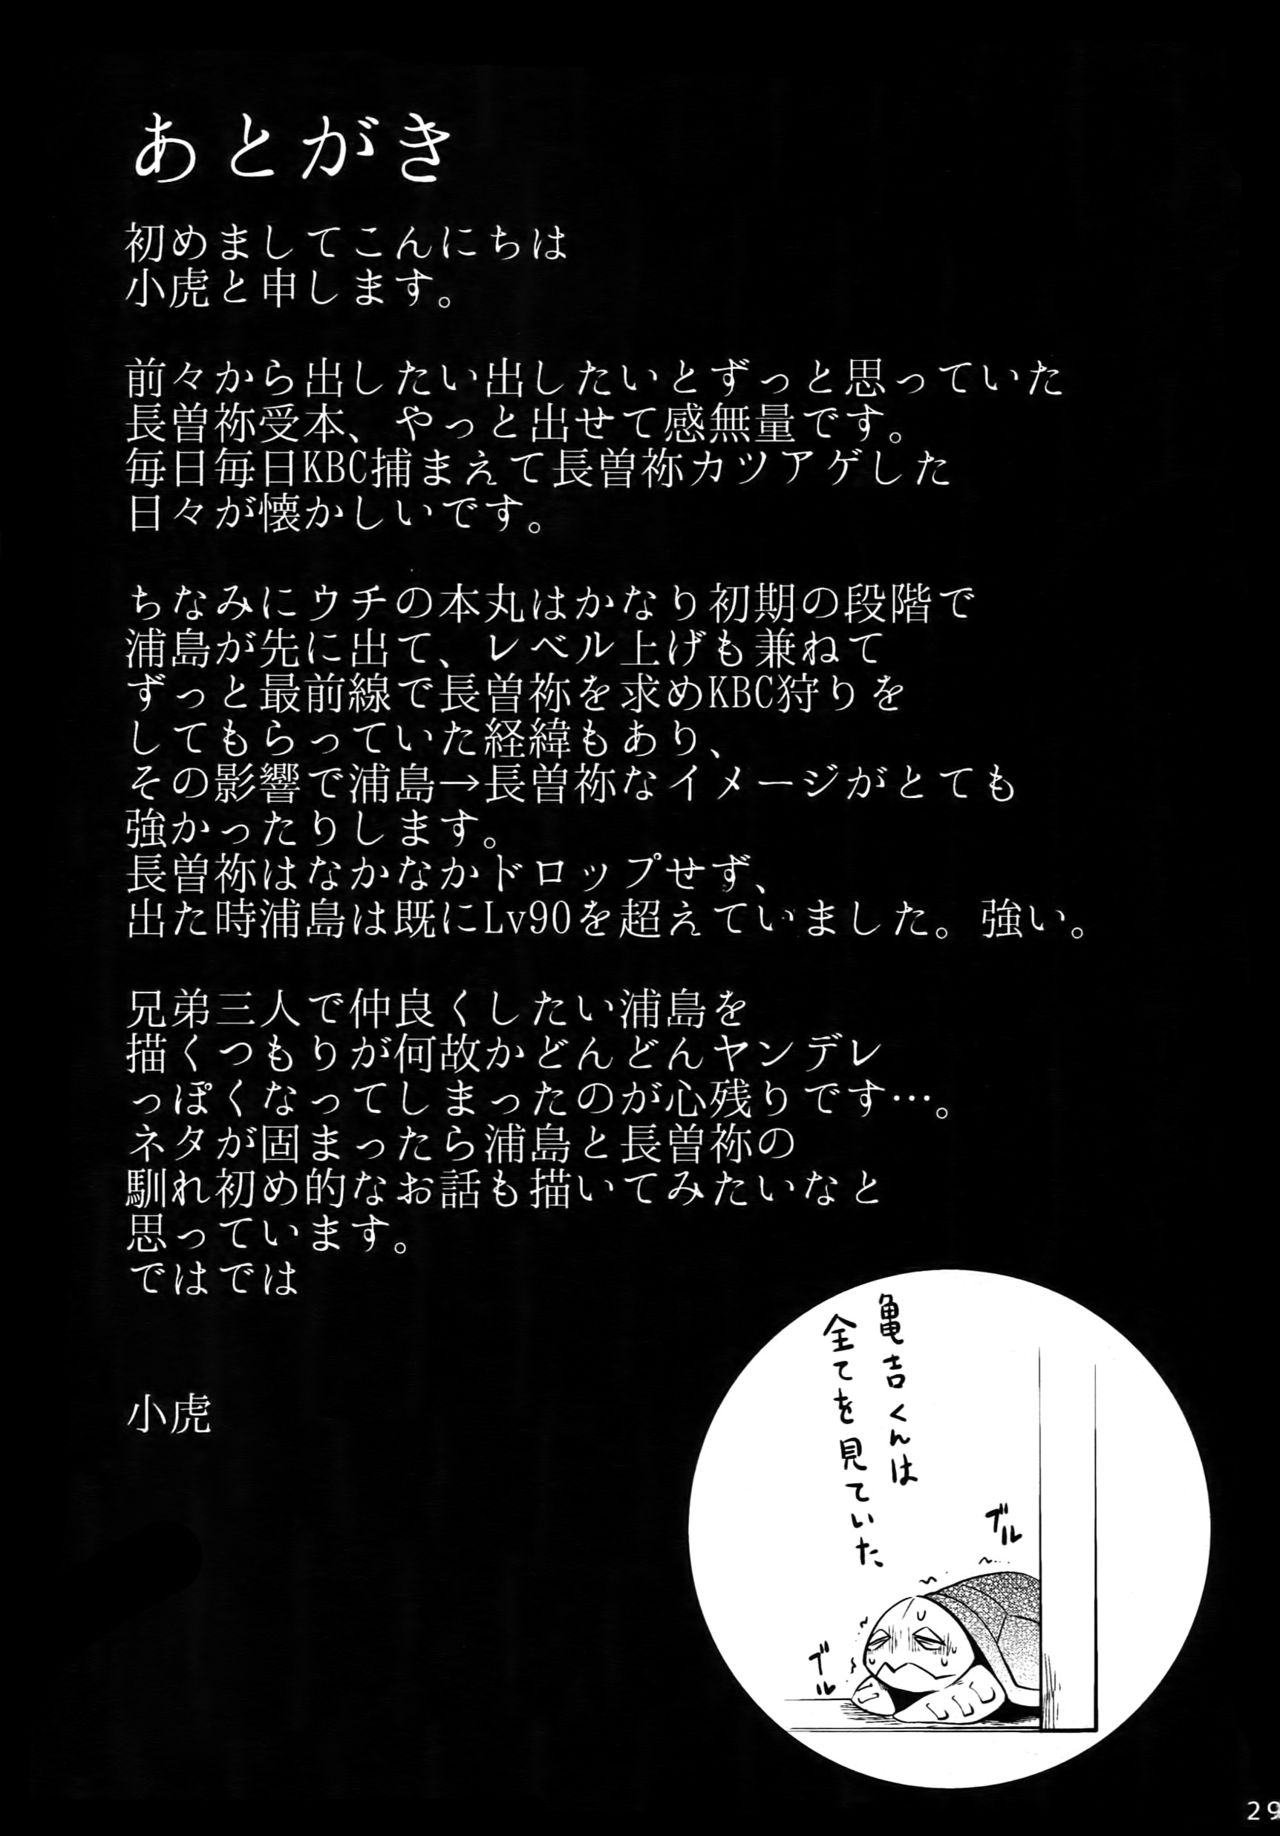 あとがき
初めましてこんにちは
小虎と申します。
前々から出したい出したいとずっと思っていた
長曽祢受本、やっと出せて感無量です。
毎日毎日KBC捕まえて長曽祢カツアゲした
日々が懐かしいです。
ちなみにウチの本丸はかなり初期の段階で
浦島が先に出て、レベル上げも兼ねて
ずっと最前線で長曽祢を求めKBC狩りを
してもらっていた経緯もあり、
その影響で浦島→長曽祢なイメージがとても
強かったりします。
長曽祢はなかなかドロップせず、
出た時浦島は既にLv90を超えていました。強い。
兄弟三人で仲良くしたい浦島を
描くつもりが何故かどんどんヤンデレ
っぽくなってしまったのが心残りです…。
ネタが固まったら浦島と長曽祢の
馴れ初め的なお話も描いてみたいなと
思っています。
ではでは
小虎
亀吉くんは
全てを見ていた
ブル
ブル
29